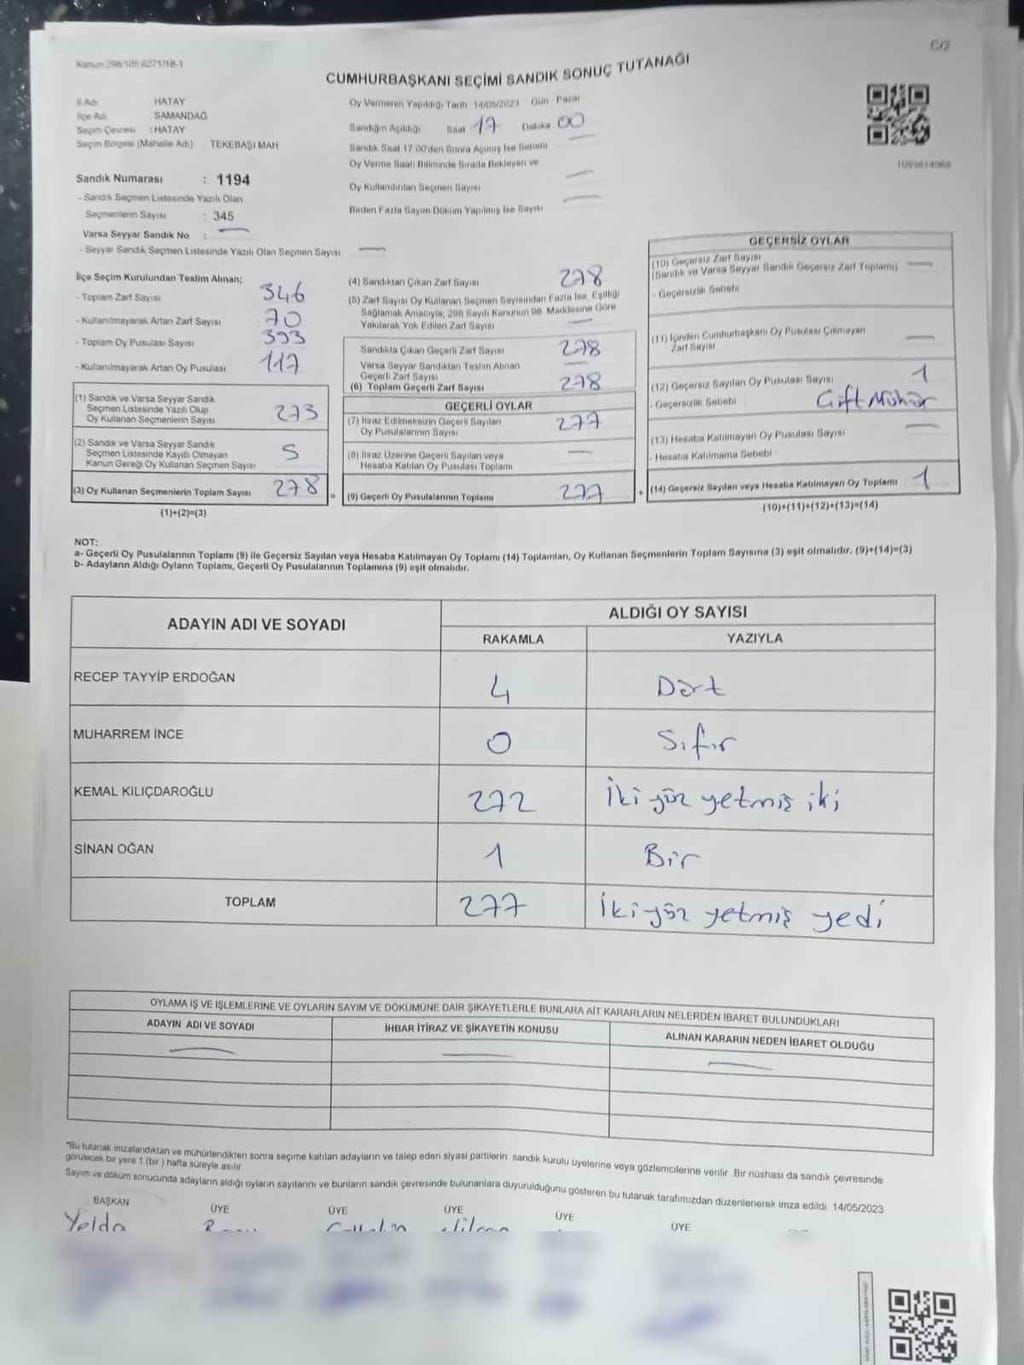 Kanun 298/105, 6271/18-1
C/2
CUMHURBAŞKANI SEÇİMİ SANDIK SONUÇ TUTANAĞI
İl Adı HATAY
İlçe Adı SAMANDAĞ
Seçim Çevresi : HATAY
Seçim Bölgesi (Mahalle Adı) TEKEBAŞI MAH
Sandık Numarası : 1194
- Sandık Seçmen Listesinde Yazılı Olan
Seçmenlerin Sayısı : 345
Varsa Seyyar Sandık No :
- Seyyar Sandık Seçmen Listesinde Yazılı Olan Seçmen Sayısı
Oy Vermenin Yapıldığı Tarih 14/05/2023 Gün Pazar
Sandığın Açıldığı Saat 17 Dakika 00
Sandık Saat 17.00'den Sonra Açılmış İse Sebebi
Oy Verme Saati Bitiminde Sırada Bekleyen ve
Oy Kullandırılan Seçmen Sayısı
Birden Fazla Sayım Döküm Yapılmış İse Sayısı
İlçe Seçim Kurulundan Teslim Alınan;
- Toplam Zarf Sayısı 346
- Kullanılmayarak Artan Zarf Sayısı 70
- Toplam Oy Pusulası Sayısı 393
- Kullanılmayarak Artan Oy Pusulası 117
(1) Sandık ve Varsa Seyyar Sandık
Seçmen Listesinde Yazılı Olup
Oy Kullanan Seçmenlerin Sayısı 273
(2) Sandık ve Varsa Seyyar Sandık
Seçmen Listesinde Kayıtlı Olmayan
Kanun Gereği Oy Kullanan Seçmen Sayısı 5
(3) Oy Kullanan Seçmenlerin Toplam Sayısı 278 =
(1)+(2)=(3)
(4) Sandıktan Çıkan Zarf Sayısı 278
(5) Zarf Sayısı Oy Kullanan Seçmen Sayısından Fazla İse, Eşitliği
Sağlamak Amacıyla, 298 Sayılı Kanunun 98. Maddesine Göre
Yakılarak Yok Edilen Zarf Sayısı
Sandıkta Çıkan Geçerli Zarf Sayısı 278
Varsa Seyyar Sandıktan Teslim Alınan
Geçerli Zarf Sayısı
(6) Toplam Geçerli Zarf Sayısı 278
GEÇERLİ OYLAR
(7) İtiraz Edilmeksizin Geçerli Sayılan
Oy Pusulalarının Sayısı 277
(8) İtiraz Üzerine Geçerli Sayılan veya
Hesaba Katılan Oy Pusulası Toplamı
(9) Geçerli Oy Pusulalarının Toplamı 277 +
GEÇERSİZ OYLAR
(10) Geçersiz Zarf Sayısı
(Sandık ve Varsa Seyyar Sandık Geçersiz Zarf Toplamı)
- Geçersizlik Sebebi
(11) İçinden Cumhurbaşkanı Oy Pusulası Çıkmayan
Zarf Sayısı
(12) Geçersiz Sayılan Oy Pusulası Sayısı 1
- Geçersizlik Sebebi Çift Mühür
(13) Hesaba Katılmayan Oy Pusulası Sayısı
- Hesaba Katılmama Sebebi
(14) Geçersiz Sayılan veya Hesaba Katılmayan Oy Toplamı 1
(10)+(11)+(12)+(13)=(14)
NOT:
a- Geçerli Oy Pusulalarının Toplamı (9) ile Geçersiz Sayılan veya Hesaba Katılmayan Oy Toplamı (14) Toplamları, Oy Kullanan Seçmenlerin Toplam Sayısına (3) eşit olmalıdır. (9)+(14)=(3)
b- Adayların Aldığı Oyların Toplamı, Geçerli Oy Pusulalarının Toplamına (9) eşit olmalıdır.
ADAYIN ADI VE SOYADI ALDIĞI OY SAYISI
RAKAMLA YAZIYLA
RECEP TAYYİP ERDOĞAN 4 Dört
MUHARREM İNCE 0 Sıfır
KEMAL KILIÇDAROĞLU 272 İki yüz yetmiş iki
SİNAN OĞAN 1 Bir
TOPLAM 277 İki yüz yetmiş yedi
OYLAMA İŞ VE İŞLEMLERİNE VE OYLARIN SAYIM VE DÖKÜMÜNE DAİR ŞİKAYETLERLE BUNLARA AİT KARARLARIN NELERDEN İBARET BULUNDUKLARI
ADAYIN ADI VE SOYADI İHBAR İTİRAZ VE ŞİKAYETİN KONUSU ALINAN KARARIN NEDEN İBARET OLDUĞU
*Bu tutanak imzalandıktan ve mühürlendikten sonra seçime katılan adayların ve talep eden siyasi partilerin sandık kurulu üyelerine veya gözlemcilerine verilir. Bir nüshası da sandık çevresinde
görülecek bir yere 1 (bir) hafta süreyle asılır.
Sayım ve döküm sonucunda adayların aldığı oyların sayılarını ve bunların sandık çevresinde bulunanlara duyurulduğunu gösteren bu tutanak tarafımızdan düzenlenerek imza edildi 14/05/2023
BAŞKAN ÜYE ÜYE ÜYE ÜYE ÜYE
Yelda